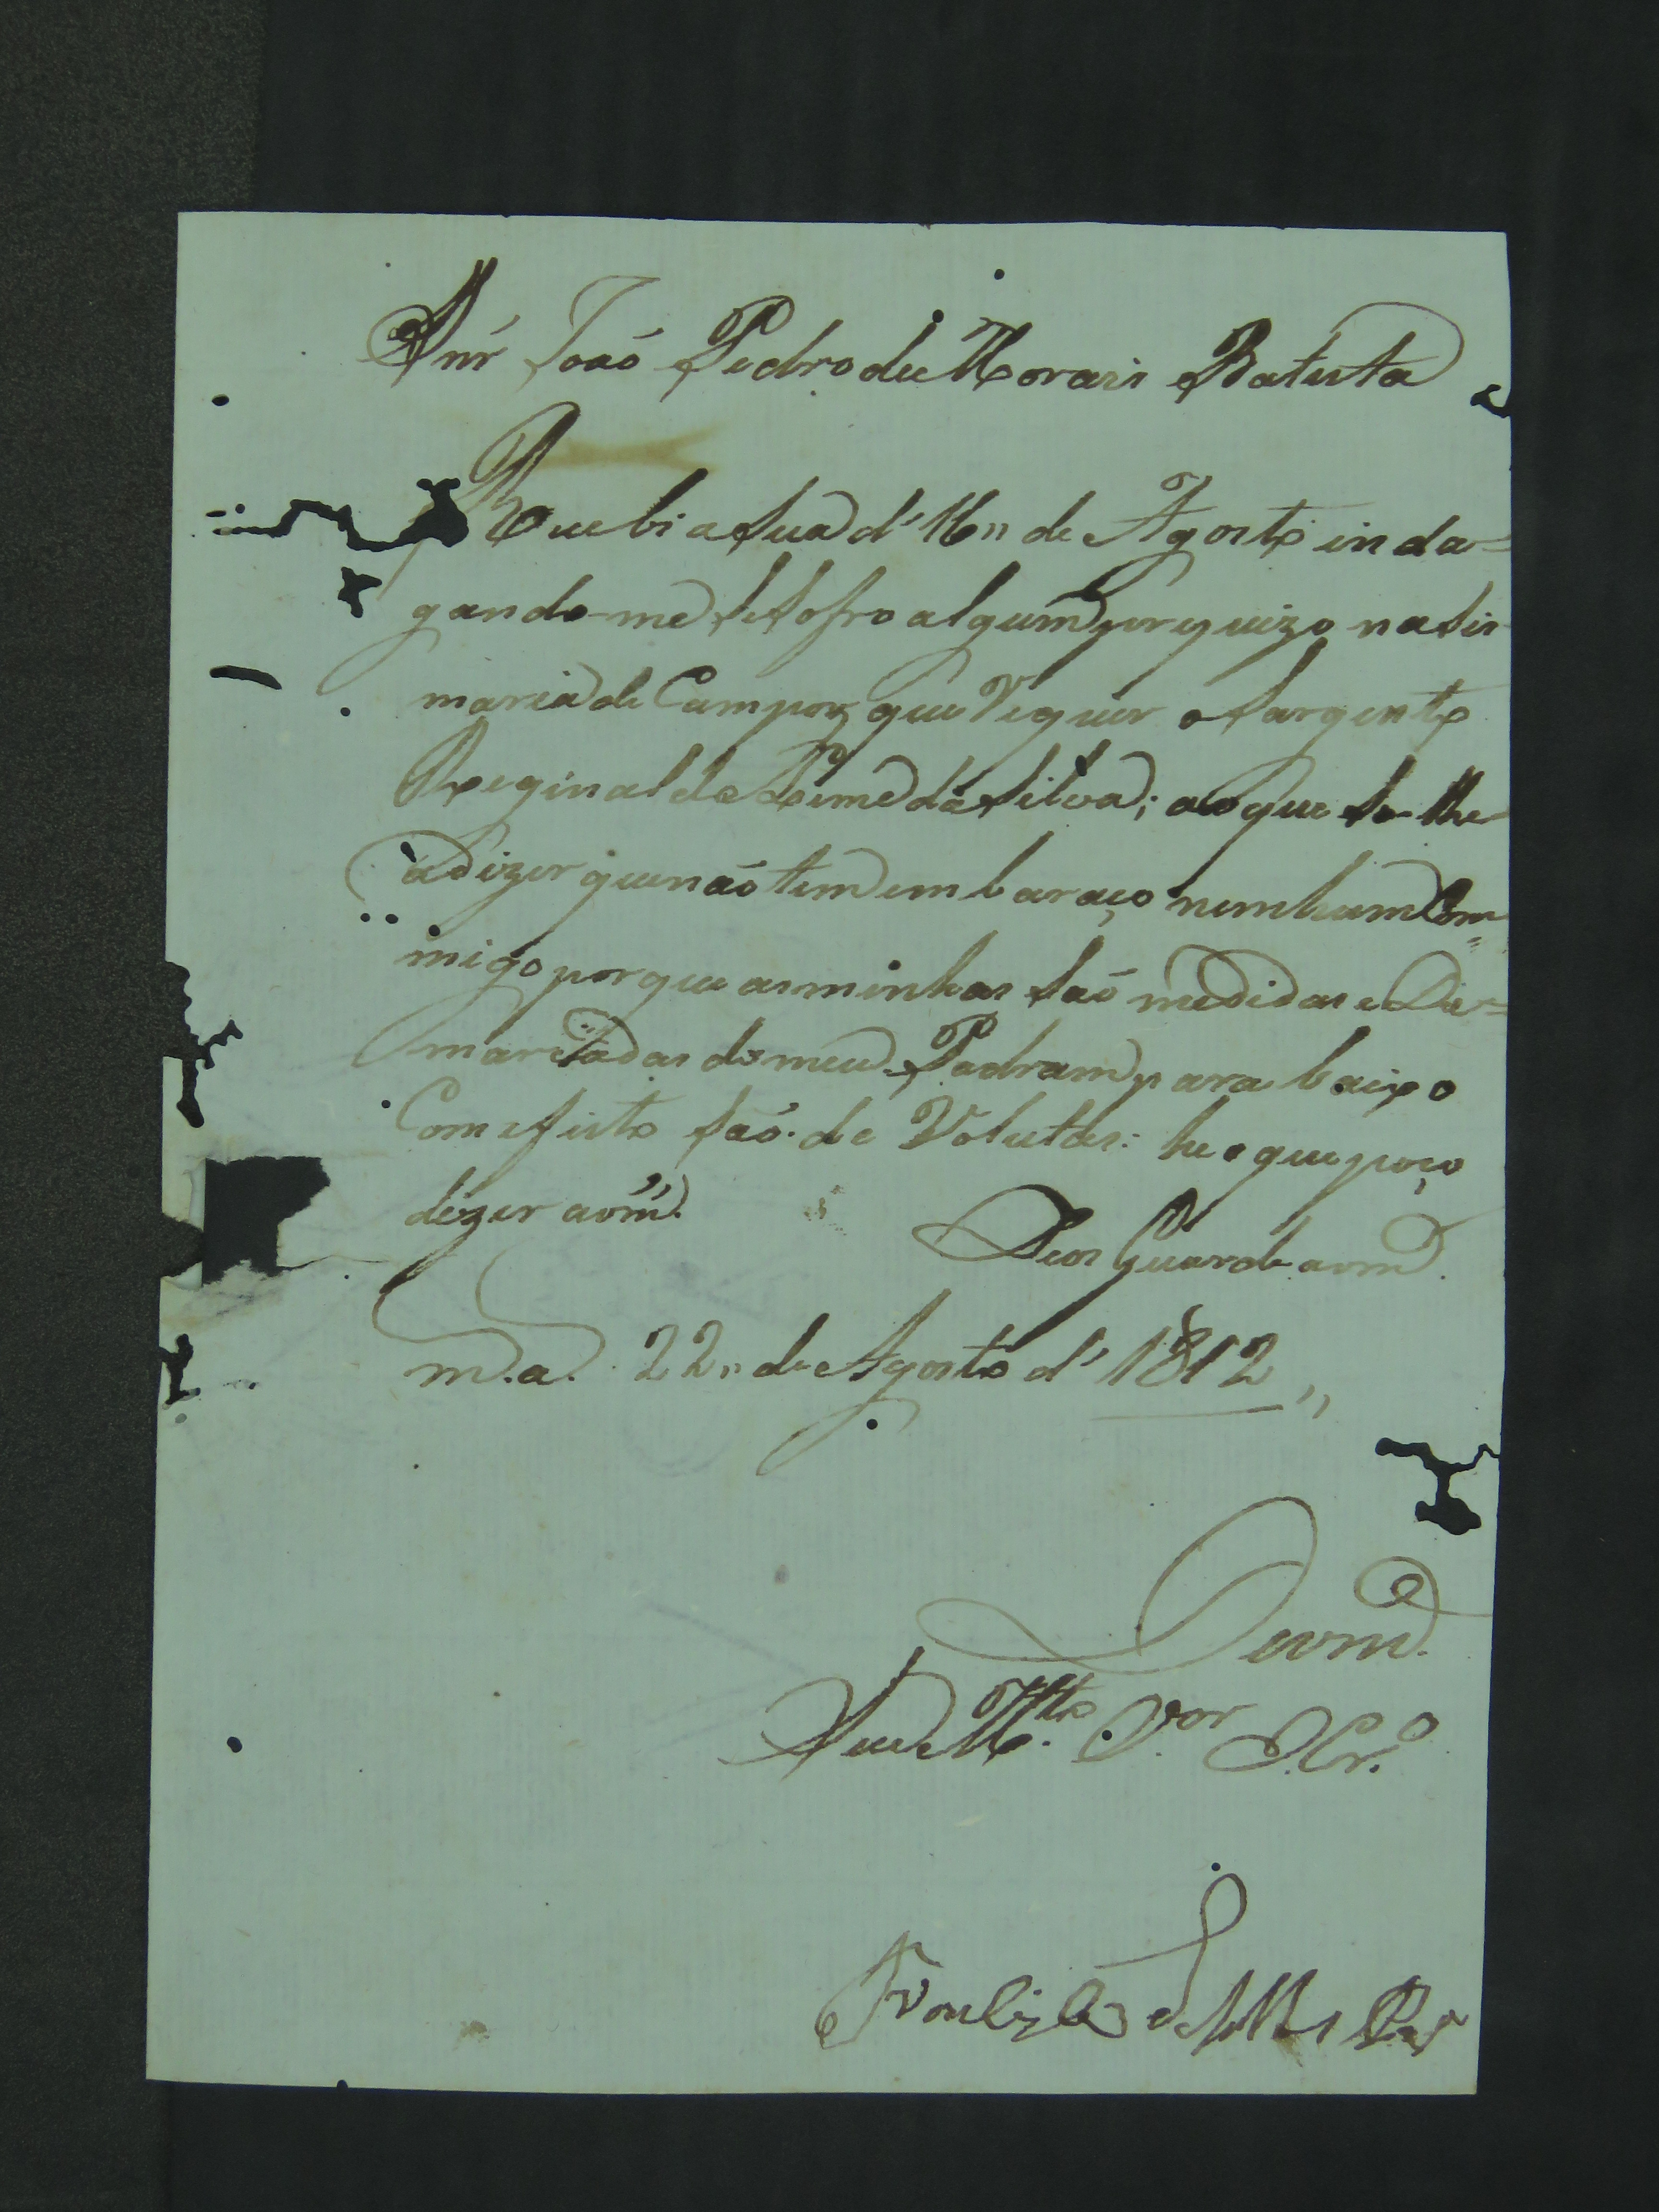 Snr João Pedro de Morais Batista
Recebi a sua d' 16,, de Agosto inda=
gando-me se sofro algum porquizo na sis
maria de Campos que requer o Sargento
Reginaldo Leme da Silva; ao que so-lhe
a dizer que não tem embaraço nenhum Com=
migo porque as minhas são medidas e De=
marcadas do meu Padram para baixo
Com efeito são de Volutas: he o que poço
dizer a vm.
Deos Guarde a vm.
m. a. 22,, de Agosto d' 1812,,
De vm.
Seu M.to V.or Cr.o